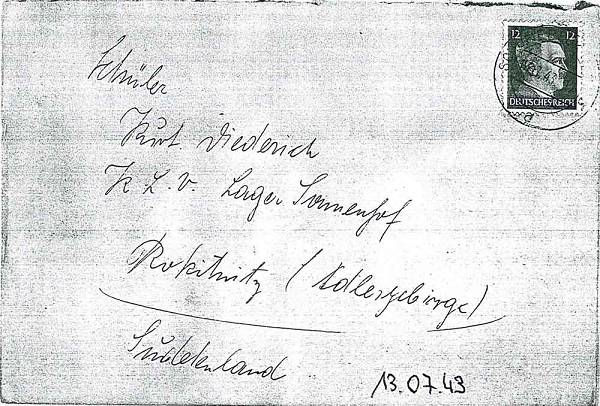 12 12
DEUTSCHES REICH
Schüler
Kurt Diederich
K. L. V. Lager Sonnenhof
Rokitnitz (Adlergebirge)
Sudetenland
13.07.43